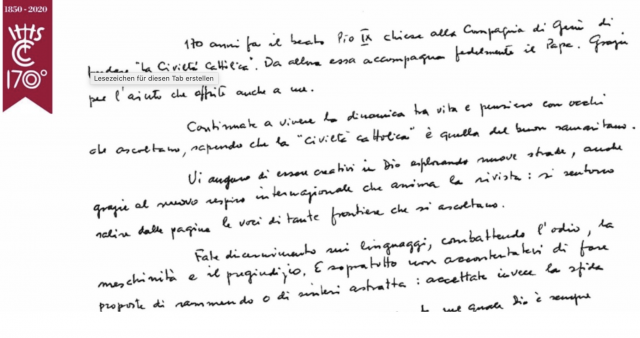 1850 - 2020
170°
170 anni fa il beato Pio IX chiese alla Compagnia di Gesù di
fondare "La Civiltà Cattolica". Da allora essa accompagna fedelmente il Papa. Grazie
Lesezeichen für diesen Tab erstellen
per l'aiuto che offrite anche a me.
Continuate a vivere la dinamica tra vita e pensiero con occhi
che ascoltano, sapendo che la "Civiltà Cattolica" è quella del buon samaritano.
Vi auguro di essere creativi in Dio esplorando nuove strade, anche
grazie al nuovo respiro internazionale che anima la rivista: si sentono
salire dalle pagine le voci di tante frontiere che si ascoltano.
Fate discernimento sui linguaggi, combattendo l'odio, la
meschinità e il pregiudizio. E sopratutto non accontentatevi di fare
proposte di rammendo o di sintesi astratta: accettate invece la sfida
nel quale Dio è sempre